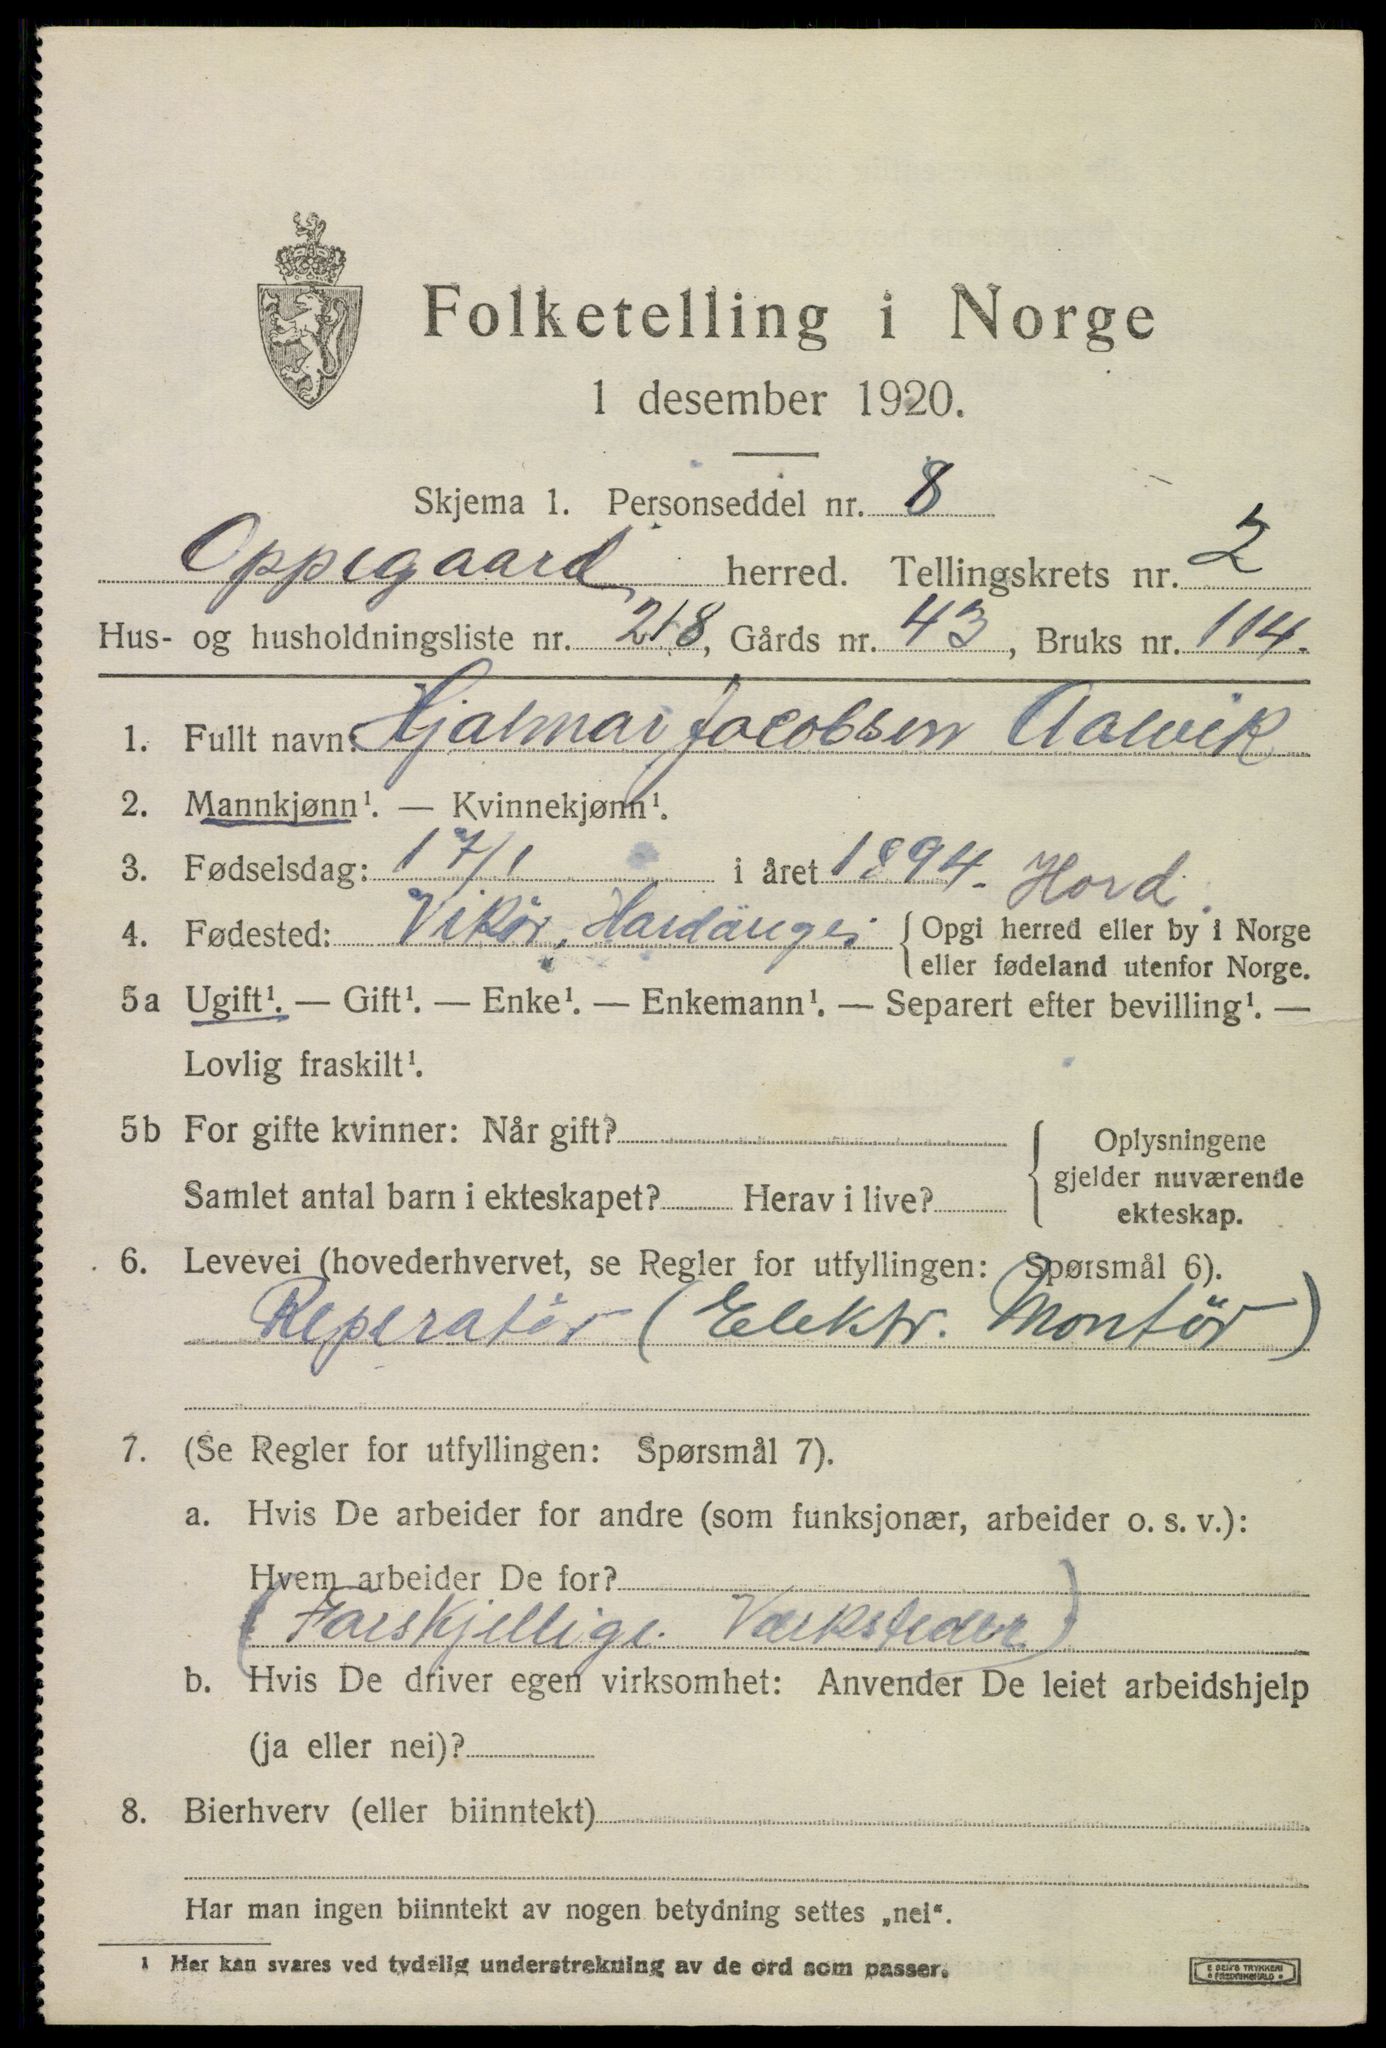 Folketelling i Norge
1 desember 1920.
Skjema 1. Personseddel nr. 8
Oppegaard herred. Tellingskrets nr. 2
Hus- og husholdningsliste nr. 218, Gårds nr. 43, Bruks nr. 114.
1. Fullt navn: Hjalmar Jacobsen Aalvik
2. Mannkjønn¹. — Kvinnekjønn¹.
3. Fødselsdag: 17/1 i året 1894. Hord.
4. Fødested: Vikør, Hardanger { Opgi herred eller by i Norge
eller fødeland utenfor Norge.
5a Ugift¹. — Gift¹. — Enke¹. — Enkemann¹. — Separert efter bevilling¹. —
Lovlig fraskilt¹.
5b For gifte kvinner: Når gift?
Samlet antal barn i ekteskapet? Herav i live?
{ Oplysningene
gjelder nuværende
ekteskap.
6. Levevei (hovederhvervet, se Regler for utfyllingen: Spørsmål 6).
Reperatör (Elektr. Montör)
7. (Se Regler for utfyllingen: Spørsmål 7).
a. Hvis De arbeider for andre (som funksjonær, arbeider o. s. v.):
Hvem arbeider De for?
(Forskjellige Værksteder)
b. Hvis De driver egen virksomhet: Anvender De leiet arbeidshjelp
(ja eller nei)?
8. Bierhverv (eller biinntekt)
Har man ingen biinntekt av nogen betydning settes „nei“.
¹ Her kan svares ved tydelig understrekning av de ord som passer.
E SEM'S TRYKKERI
FREDRIKSHALD